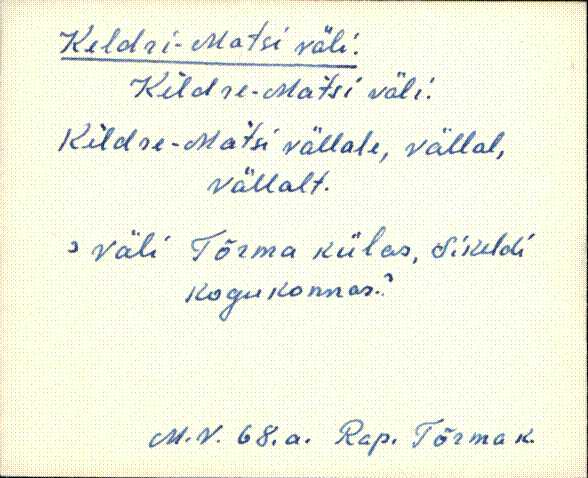 Keldri-Matsi väli.
Kėldre-Mat́si väli.
Kėldre-Mat́si vällale, vällal,
vällalt.
" väli Tõrma külas, Sikeldi
kogukonnas."
M.V. 68.a. Rap. Tõrma k.